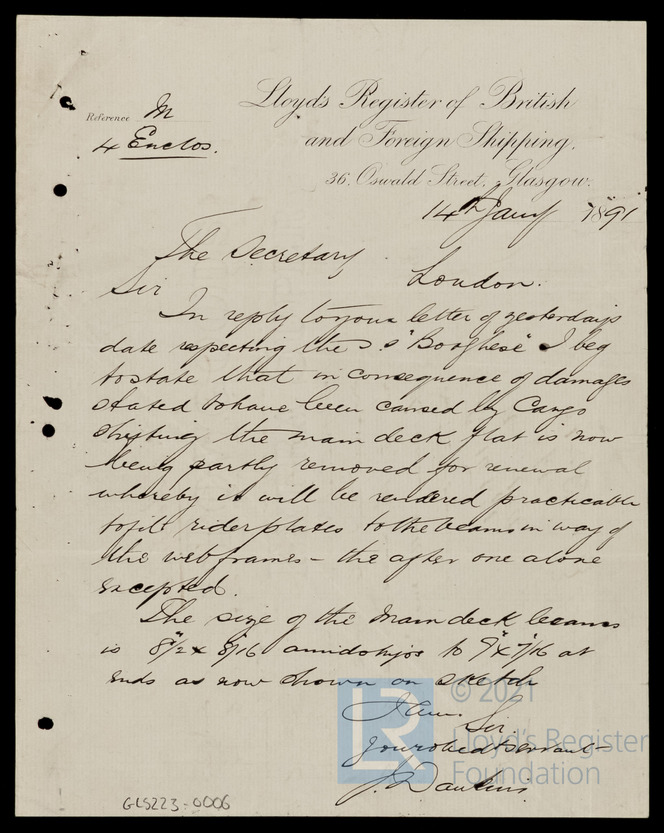 Lloyd's Register of British
and Foreign Shipping.
36, Oswald Street, Glasgow.
Reference M
4 Enclos.
14th Jany 1891
The Secretary
London.
Sir
In reply to your letter of yesterdays
date respecting the s.s "Borghese" I beg
to state that in consequence of damages
stated to have been caused by Cargo
shifting the main deck flat is now
being partly removed for renewal
whereby it will be rendered practicable
to fit rider plates to the beams in way of
the web frames - the after one alone
excepted.
The size of the main deck beams
is 8 1/2 x 8/16 amidships to 9" x 7/16 at
ends as now shown on sketch
I am. Sir
Your obedt servant
J. Dawkins
GLS223-0006
© 2021
Lloyd's Register
Foundation
LR